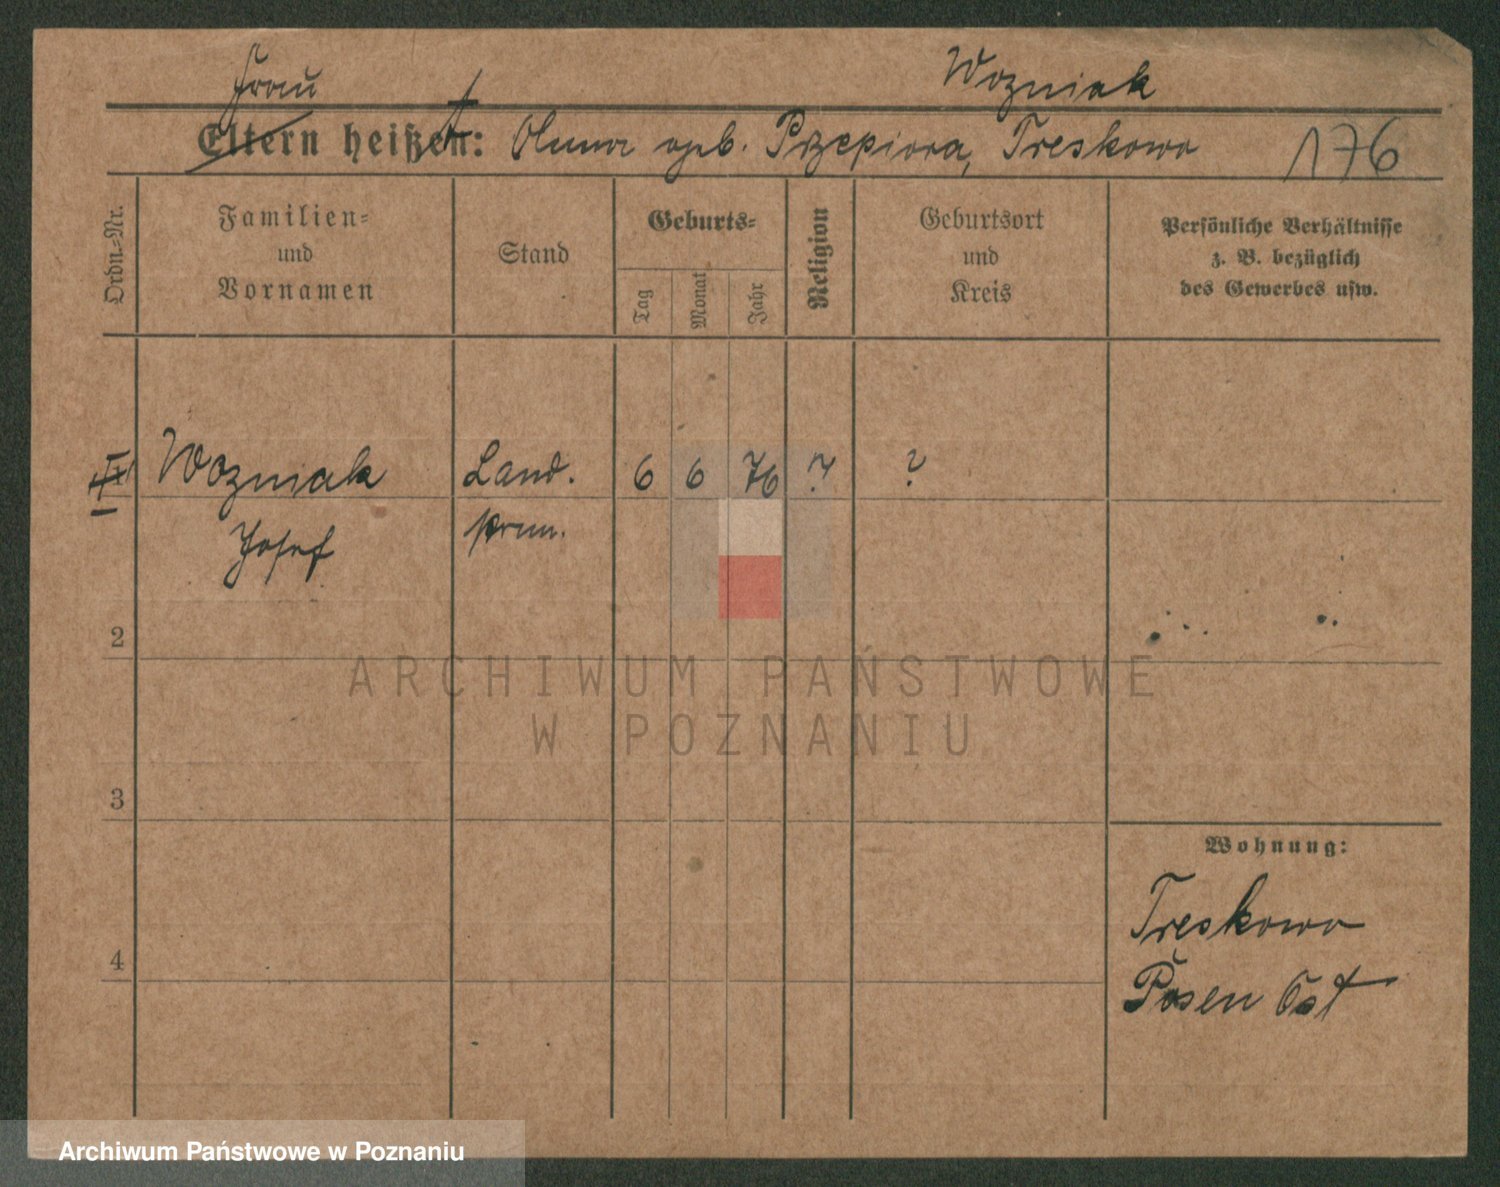 Frau
Wozniak
Eltern heißen: Anna geb. Przepiora, Treskowo
176
Ordn.-Nr.
Familien-
und
Vornamen
Stand
Geburts-
Tag
Monat
Jahr
Religion
Geburtsort
und
Kreis
Persönliche Verhältnisse
z. B. bezüglich
des Gewerbes usw.
Wozniak Land. 6 6 76 ? ?
Josef
2
3
4
Wohnung:
Treskowo
Posen Ost
ARCHIWUM PAŃSTWOWE
W POZNANIU
Archiwum Państwowe w Poznaniu